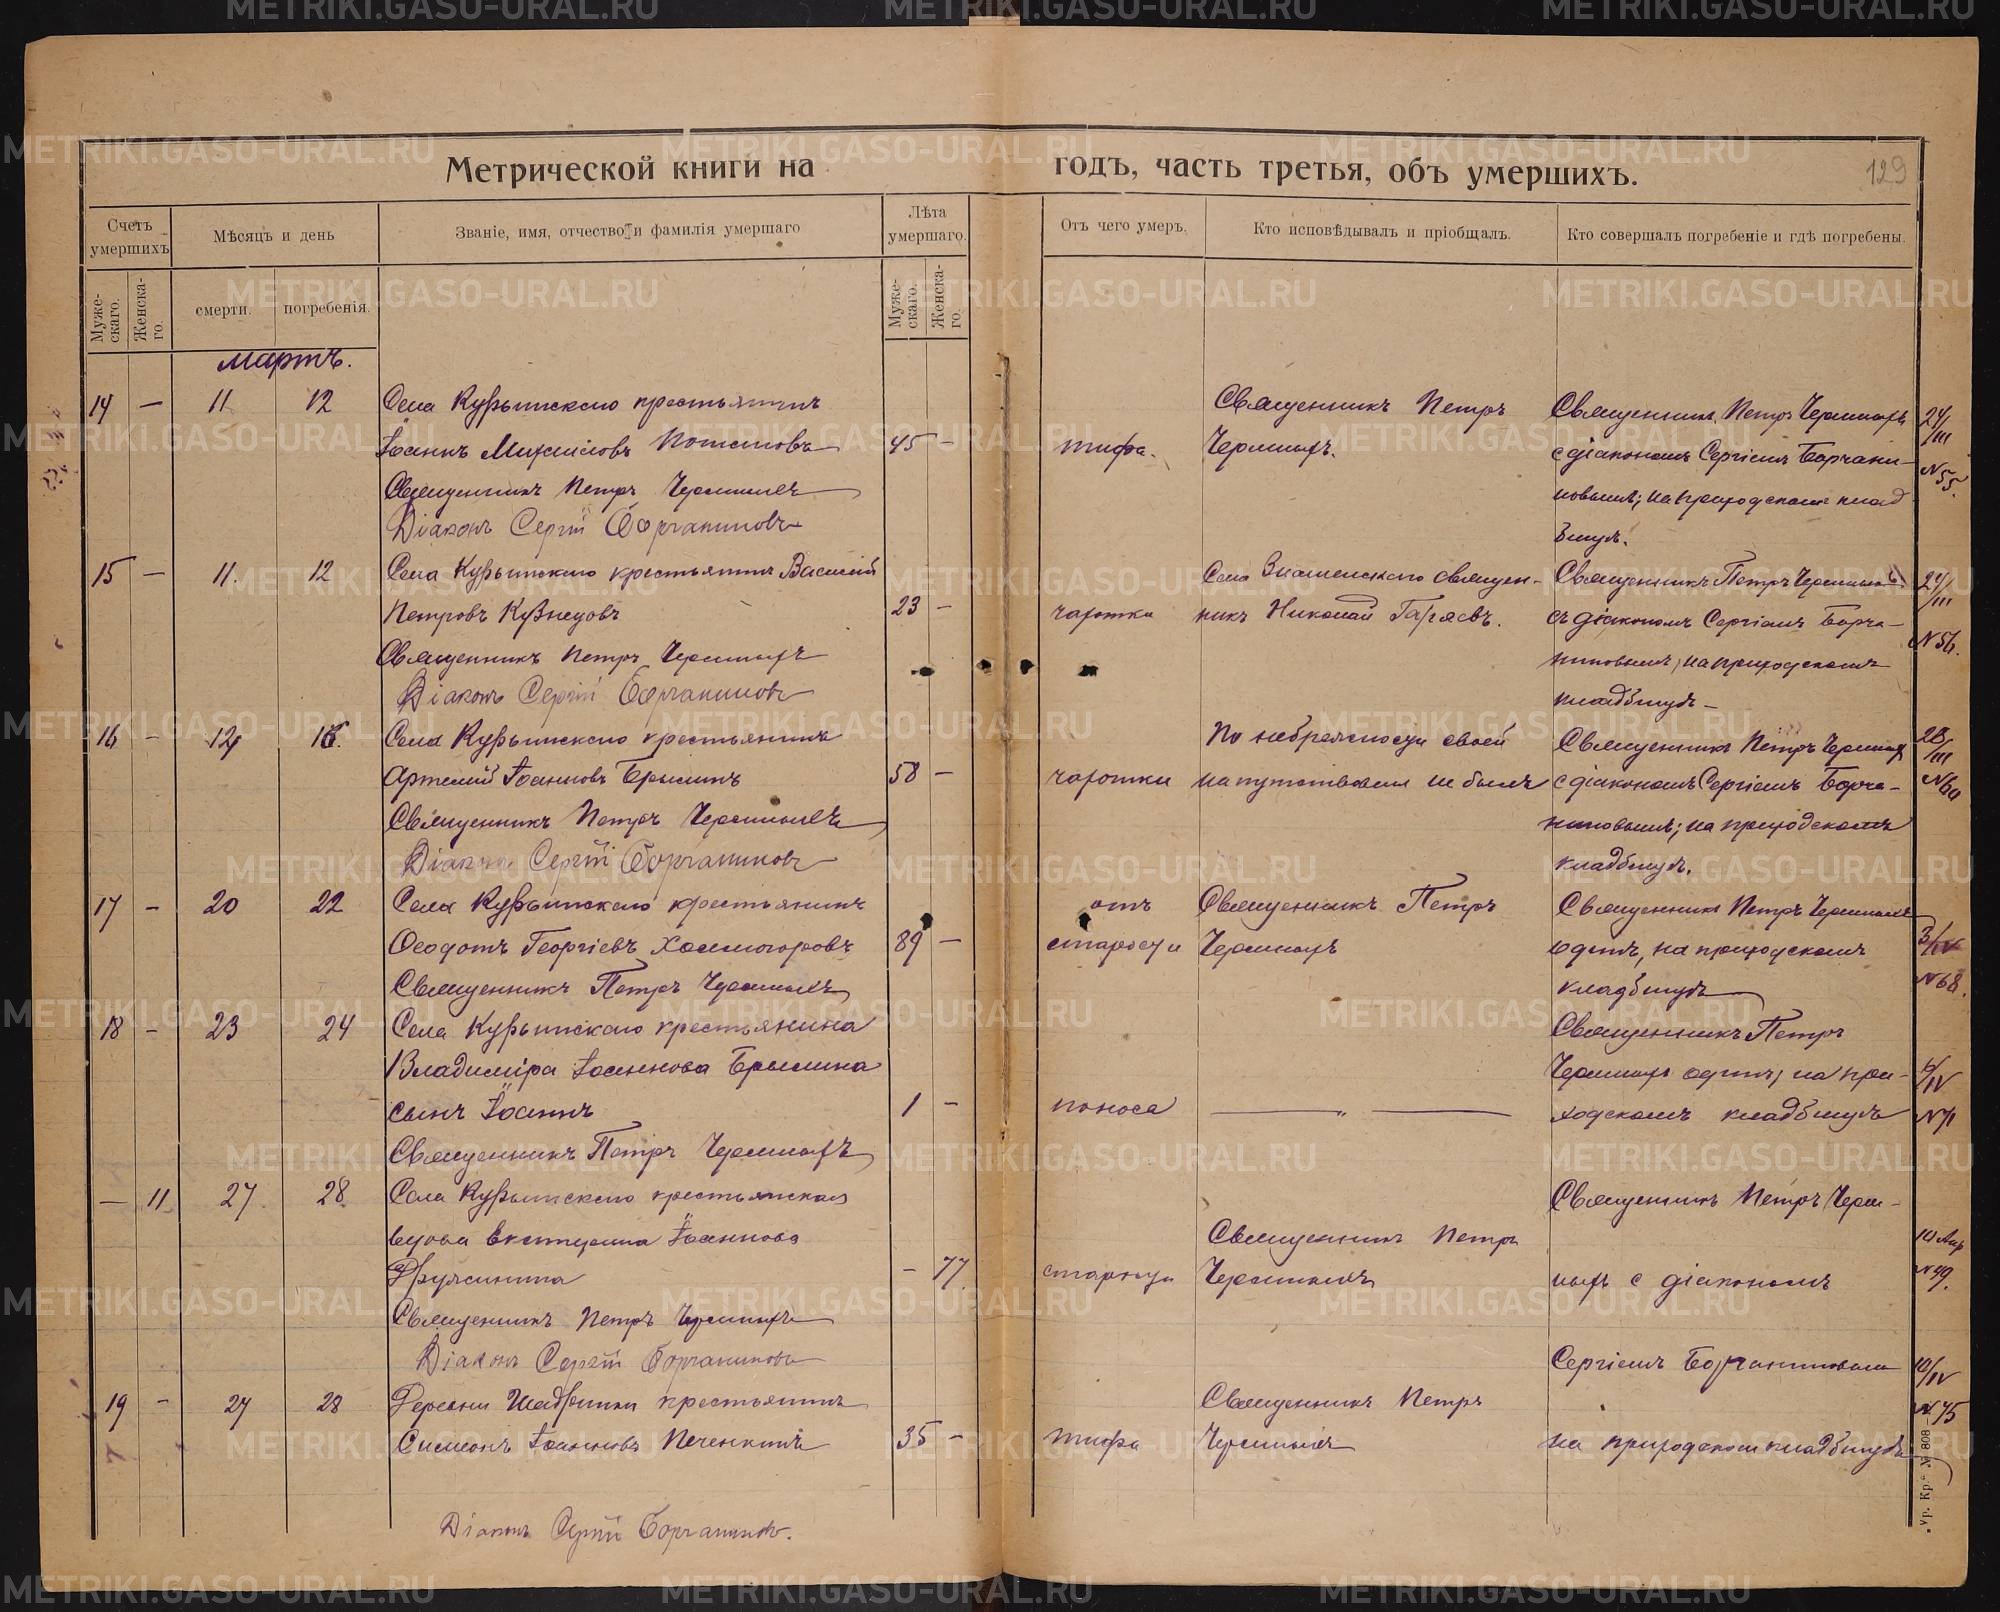 Метрической книги на годъ, часть третья, объ умершихъ.
129
Счетъ умершихъ
Мѣсяцъ и день
Званіе, имя, отчество и фамилія умершаго
Лѣта умершаго.
Отъ чего умеръ.
Кто исповѣдывалъ и пріобщалъ.
Кто совершалъ погребеніе и гдѣ погребены.
Муже-скаго.
Женска-го.
смерти.
погребенія.
Муже-скаго.
Женска-го.
Мартъ.
14 — 11 12 Села Курьинскаго крестьянинъ
Священникъ Петръ
Священникъ Петръ Черемныхъ
24/III
Іоаннъ Михаиловъ Потаповъ 45 —
тифа.
Черемныхъ.
с діакономъ Сергіемъ Борчани-
N 55.
Священникъ Петръ Черемныхъ
новымъ; на приходскомъ клад
Діаконъ Сергій Борчаниновъ
бищѣ.
15 — 11. 12 Села Курьинскаго крестьянинъ Василій
Села Знаменскаго священ-
Священникъ Петръ Черемныхъ
24/III
Петровъ Кузнецовъ 23 —
чахотки
никъ Николай Гаряевъ.
съ діакономъ Сергіемъ Борча-
N 56.
Священникъ Петръ Черемныхъ
ниновымъ, на приходскомъ
Діаконъ Сергій Борчаниновъ
кладбищѣ
16 — 14 16. Села Курьинскаго крестьянинъ
По небрежности своей
Священникъ Петръ Черемныхъ
28/III
Артемій Іоанновъ Брылинъ 58 —
чахотки
напутствованъ не былъ
с діакономъ Сергіемъ Борча-
Священникъ Петръ Черемныхъ
ниновымъ; на приходскомъ
Діаконъ Сергій Борчаниновъ
кладбищѣ.
17 — 20 22 Села Курьинскаго крестьянинъ
отъ
Священникъ Петръ
Священникъ Петръ Черемныхъ
3/IV
Ѳеодотъ Георгіевъ Холмогоровъ 89 —
старости
Черемныхъ
одинъ, на приходскомъ
N 68.
Священникъ Петръ Черемныхъ
кладбищѣ
18 — 23 24 Села Курьинскаго крестьянина
Священникъ Петръ
Владиміра Іоаннова Брылина
Черемныхъ одинъ, на при-
6/IV
сынъ Іоаннъ 1 —
поноса
— „ —
ходскомъ кладбищѣ
N 71
Священникъ Петръ Черемныхъ
— 11 27 28 Села Курьинскаго крестьянская
Священникъ Петръ Черем-
вдова Екатерина Іоаннова
Священникъ Петръ
10 Апр
Дружинина — 77
старости
Черемныхъ
ныхъ с діакономъ
N 49.
Священникъ Петръ Черемныхъ
Діаконъ Сергій Борчаниновъ
Сергіемъ Борчаниновымъ
10/IV
19 — 27 28 Деревни Шадринки крестьянинъ
Священникъ Петръ
N 75
Симеонъ Іоанновъ Печенкинъ 35 —
тифа
Черемныхъ
на приходскомъ кладбищѣ
Діаконъ Сергій Борчаниновъ.
„Ур. Кр.“ № 808
METRIKI.GASO-URAL.RU